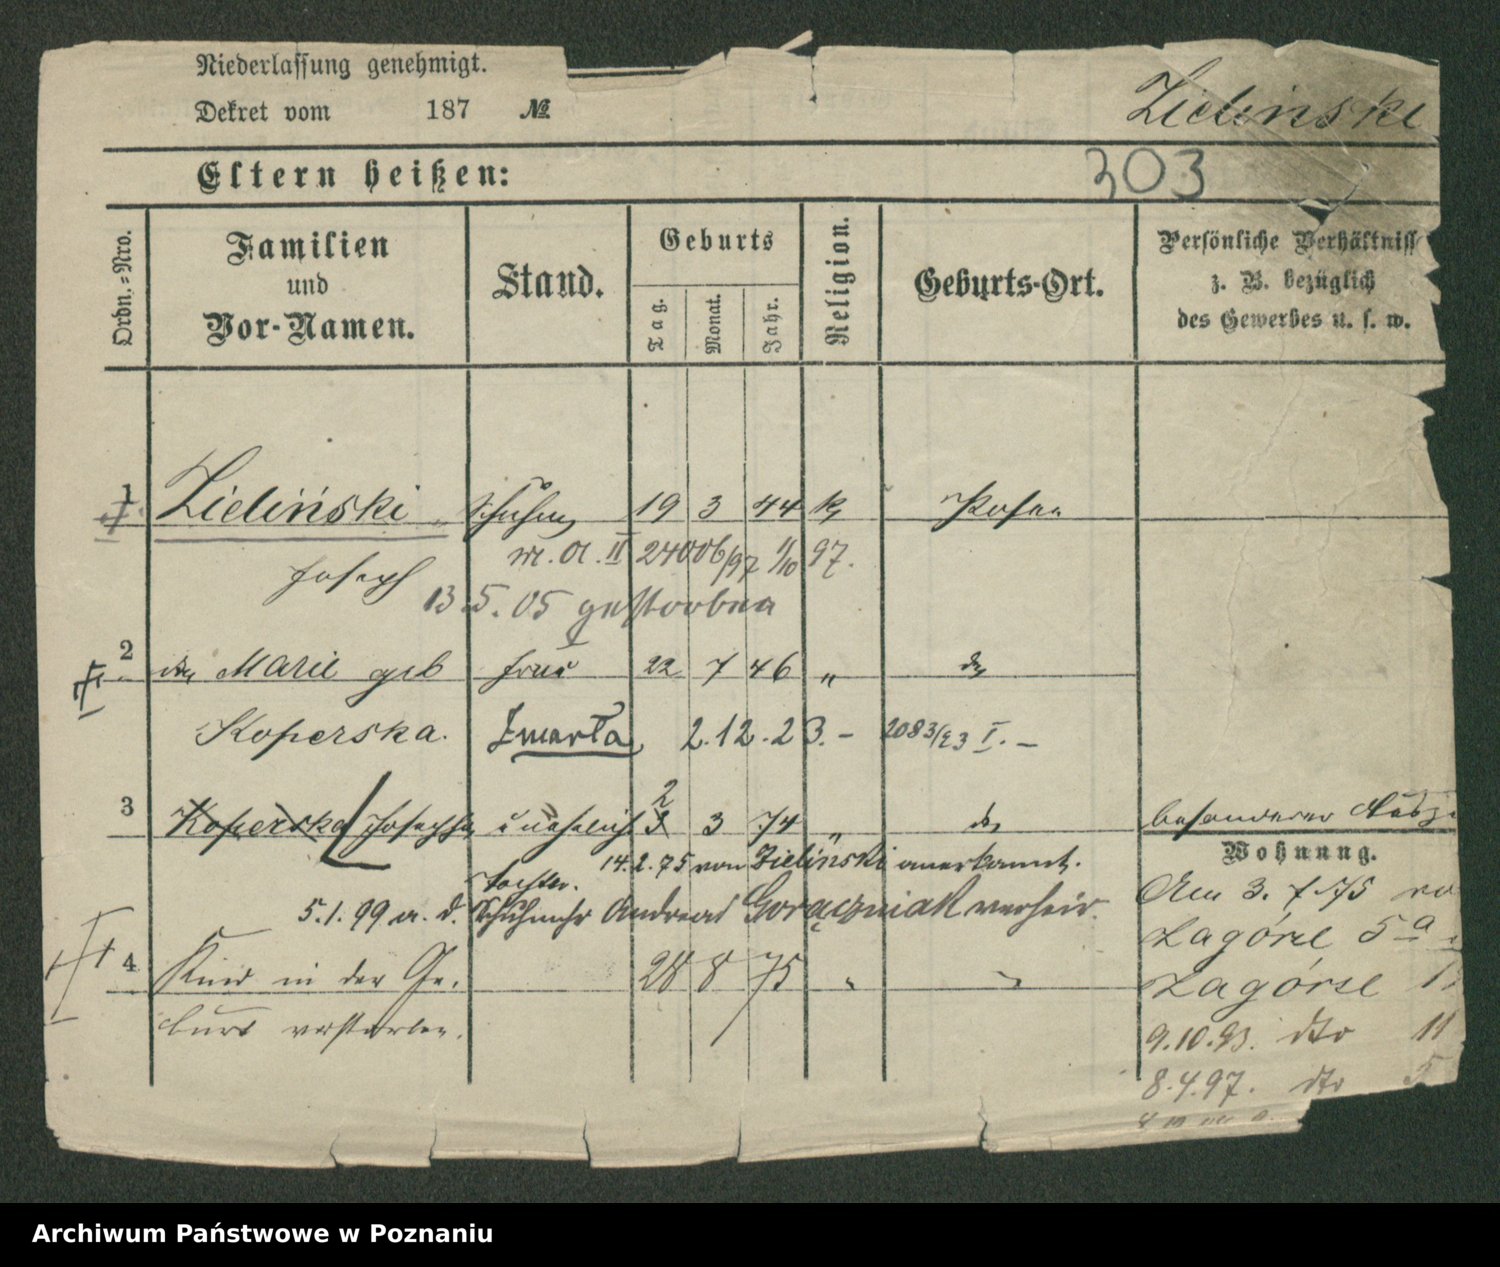 Niederlassung genehmigt.
Dekret vom 187 №
Zielinski
Eltern heißen:
303
Ordn.=Nro.
Familien
und
Vor-Namen.
Stand.
Geburts
Tag.
Monat.
Jahr.
Religion.
Geburts-Ort.
Persönliche Verhältniss
z. B. bezüglich
des Gewerbes u. s. w.
1 Zieliński 19 3 44 k Posen
Joseph m. A. II 24006/97 1/10 97.
13.5.05 gestorben
2 Marie geb Frau 22 7 46 "
Koperska. Zmarła 2.12.23.- 2083/23 I.-
3 Koperska Josepha unehelich 2 3 74 "
besonderer
Tochter. 14.2.75 von Zieliński anerkannt.
Wohnung.
5.1.99 a. d. Schuhmchr Andreas Gorączniak verheir.
4 Kind in der Ge- 28 8 75
burt verstorben.
Am 3. 7 75
Zagórze 5a
Zagórze
9.10.93. dto 11
8.4.97. dto 5
Archiwum Państwowe w Poznaniu